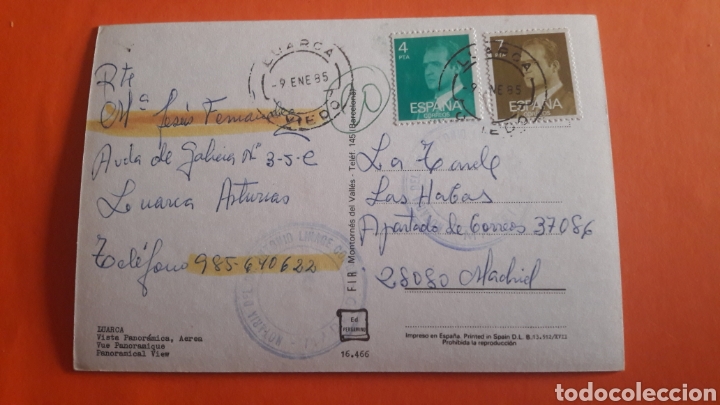 Rte
Mª Jesús Fernández
Avda de Galicia Nº 3-5-C
Luarca Asturias
Teléfono 985-640622
LUARCA
Vista Panorámica, Aerea
Vue Panoramique
Panoramical View
LUARCA
-9 ENE 85
OVIEDO
20
FIR Montornés del Vallés - Teléf. 145 (Barcelona)
Ed.
PERGAMINO
16.466
4
PTA
ESPAÑA
CORREOS
7
PTA
ESPAÑA
LUARCA
-9 ENE 85
OVIEDO
La Tarde
Las Habas
Apartado de Correos 37086
28080 Madrid
Impreso en España. Printed in Spain D.L. B.
Prohibida la reproducción
todocoleccion